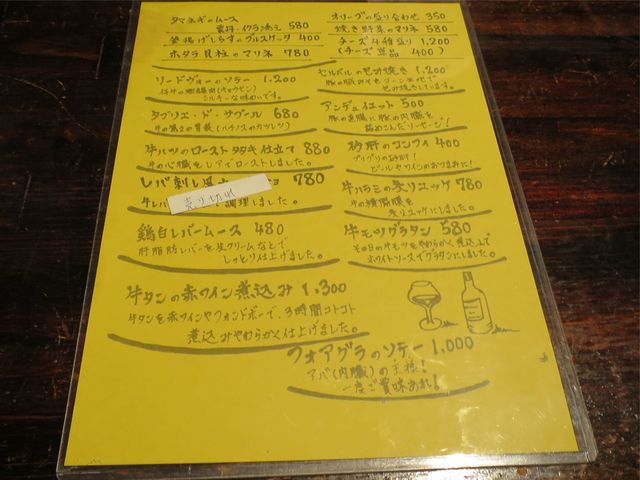 タマネギのムース
雲丹・イクラ添え 580
釜揚げしらすのブルスケッタ 400
ホタテ貝柱のマリネ 780
オリーブの盛り合わせ 350
焼き野菜のマリネ 580
チーズ4種盛り 1,200
(チーズ単品 400)
リードヴォーのソテー 1,200
仔牛の胸腺肉(キョウセン)
ミルキーな味わいです。
タブリエ・ド・サプール 680
牛の第2の胃袋(ハチノスのカツレツ)
牛ハツのローストタタキ仕立て 880
牛の心臓をレアでローストしました。
レバ刺し風 780
売り切れ
牛レバ で調理しました。
鶏白レバームース 480
肝脂肪レバーを生クリームなどで
しっとり仕上げました。
牛タンの赤ワイン煮込み 1,300
牛タンを赤ワインやフォンドボーで、3時間コトコト
煮込みやわらかく仕上げました。
セルベルの包み焼き 1,200
包み焼きしています。
アンデュイエット 500
豚の直腸に豚の内臓を
詰めこんだソーセージ!
砂肝のコンフィ 400
プリプリの砂肝!
ビールやワインのおつまみに!
牛ハラミの炙リュッケ 780
牛の横隔膜を
炙リュッケにしました。
牛モツグラタン 580
その日の牛モツをやわらかく煮込み上で
ホワイトソースでグラタンにしました。
フォアグラのソテー 1,000
アバ(内臓)の王様!
一度ご賞味あれ!